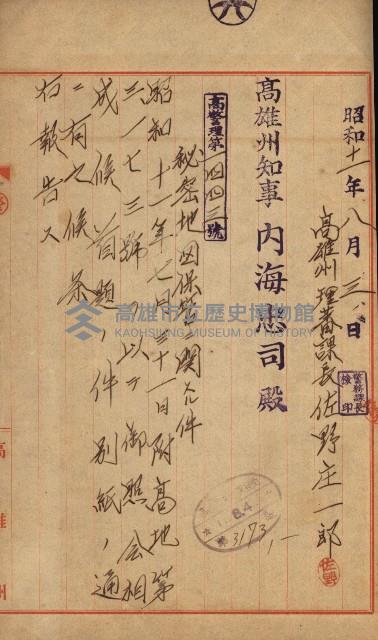 昭和十一年八月三日
高雄州理蕃課長佐野庄一郎
警務課長
検印
佐野
高雄州知事 內海忠司 殿
高警理第一四四三號
秘密地図保管ニ関スル件
昭和十一年七月三十一日附高地第
三一七三號ヲ以テ御照会相
成候首題ノ件別紙ノ通
ニ有之候条
右報告ス
8.4
3173
高雄市立歷史博物館
KAOHSIUNG MUSEUM OF HISTORY
高雄州